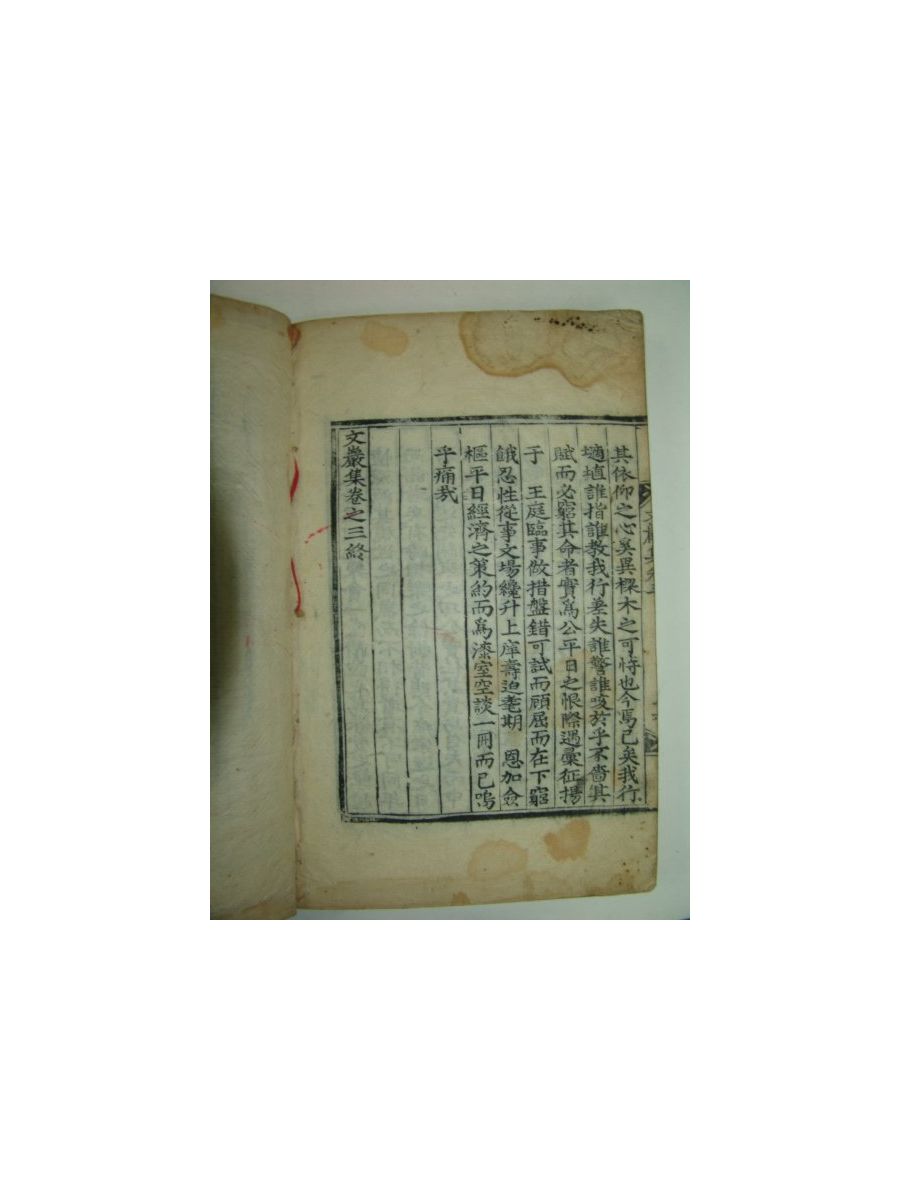 其依仰之心奚異樛木之可恃也今焉已矣我行
擿埴誰指誰教我行差失誰警誰攻於乎不啻其
賦而必窮其命者實爲公平日之恨際遇彙征揚
于 王庭臨事做措盤錯可試而顧屈而在下窮
餓忍性從事文場纔升上庠壽迫耄期 恩加僉
樞平日經濟之策約而爲漆室空談一冊而已嗚
乎痛哉
文巖集卷之三終